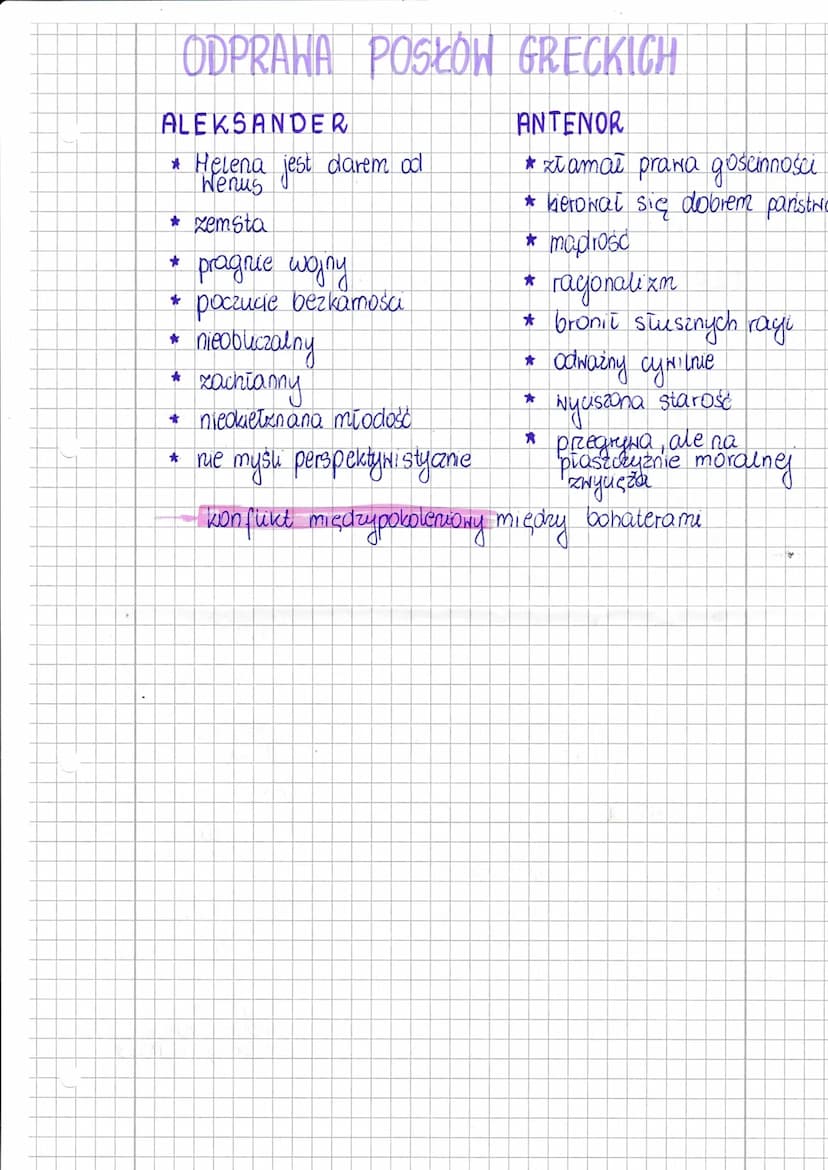 ODPRAWA POSŁÓW GRECKICH
ALEKSANDER
* Helena jest darem od
Wenus
* zemsta
* pragnie wojny
* poczucie bezkarności
* nieobliczalny
* zachłanny
* nieokiełznana młodość
* nie myśli perspektywistycznie
ANTENOR
* złamał prawa gościnności
* kierował się dobrem państwa
* mądrość
* racjonalizm
* bronił słusznych racji
* odważny cywilnie
* wyciszona starość
* przegrywa, ale na
płaszczyźnie moralnej
zwycięża
→ konflikt międzypokoleniowy między bohaterami